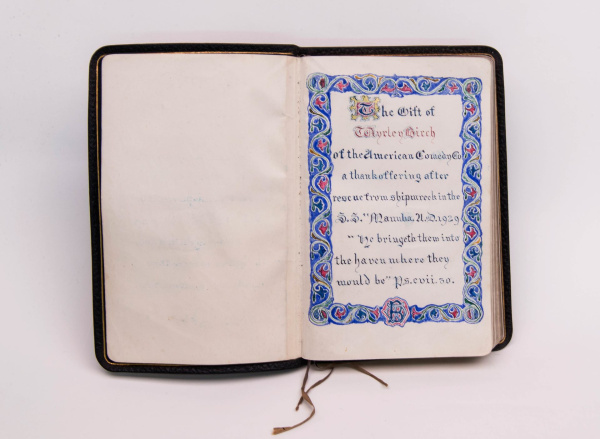 The Gift of
T Wyrley Birch
of the American Comedy Co
a thankoffering after
rescue from shipwreck in the
S.S. "Manuka. A.D. 1929
"He bringeth them into
the haven where they
would be" Ps. cvii. 30.
B